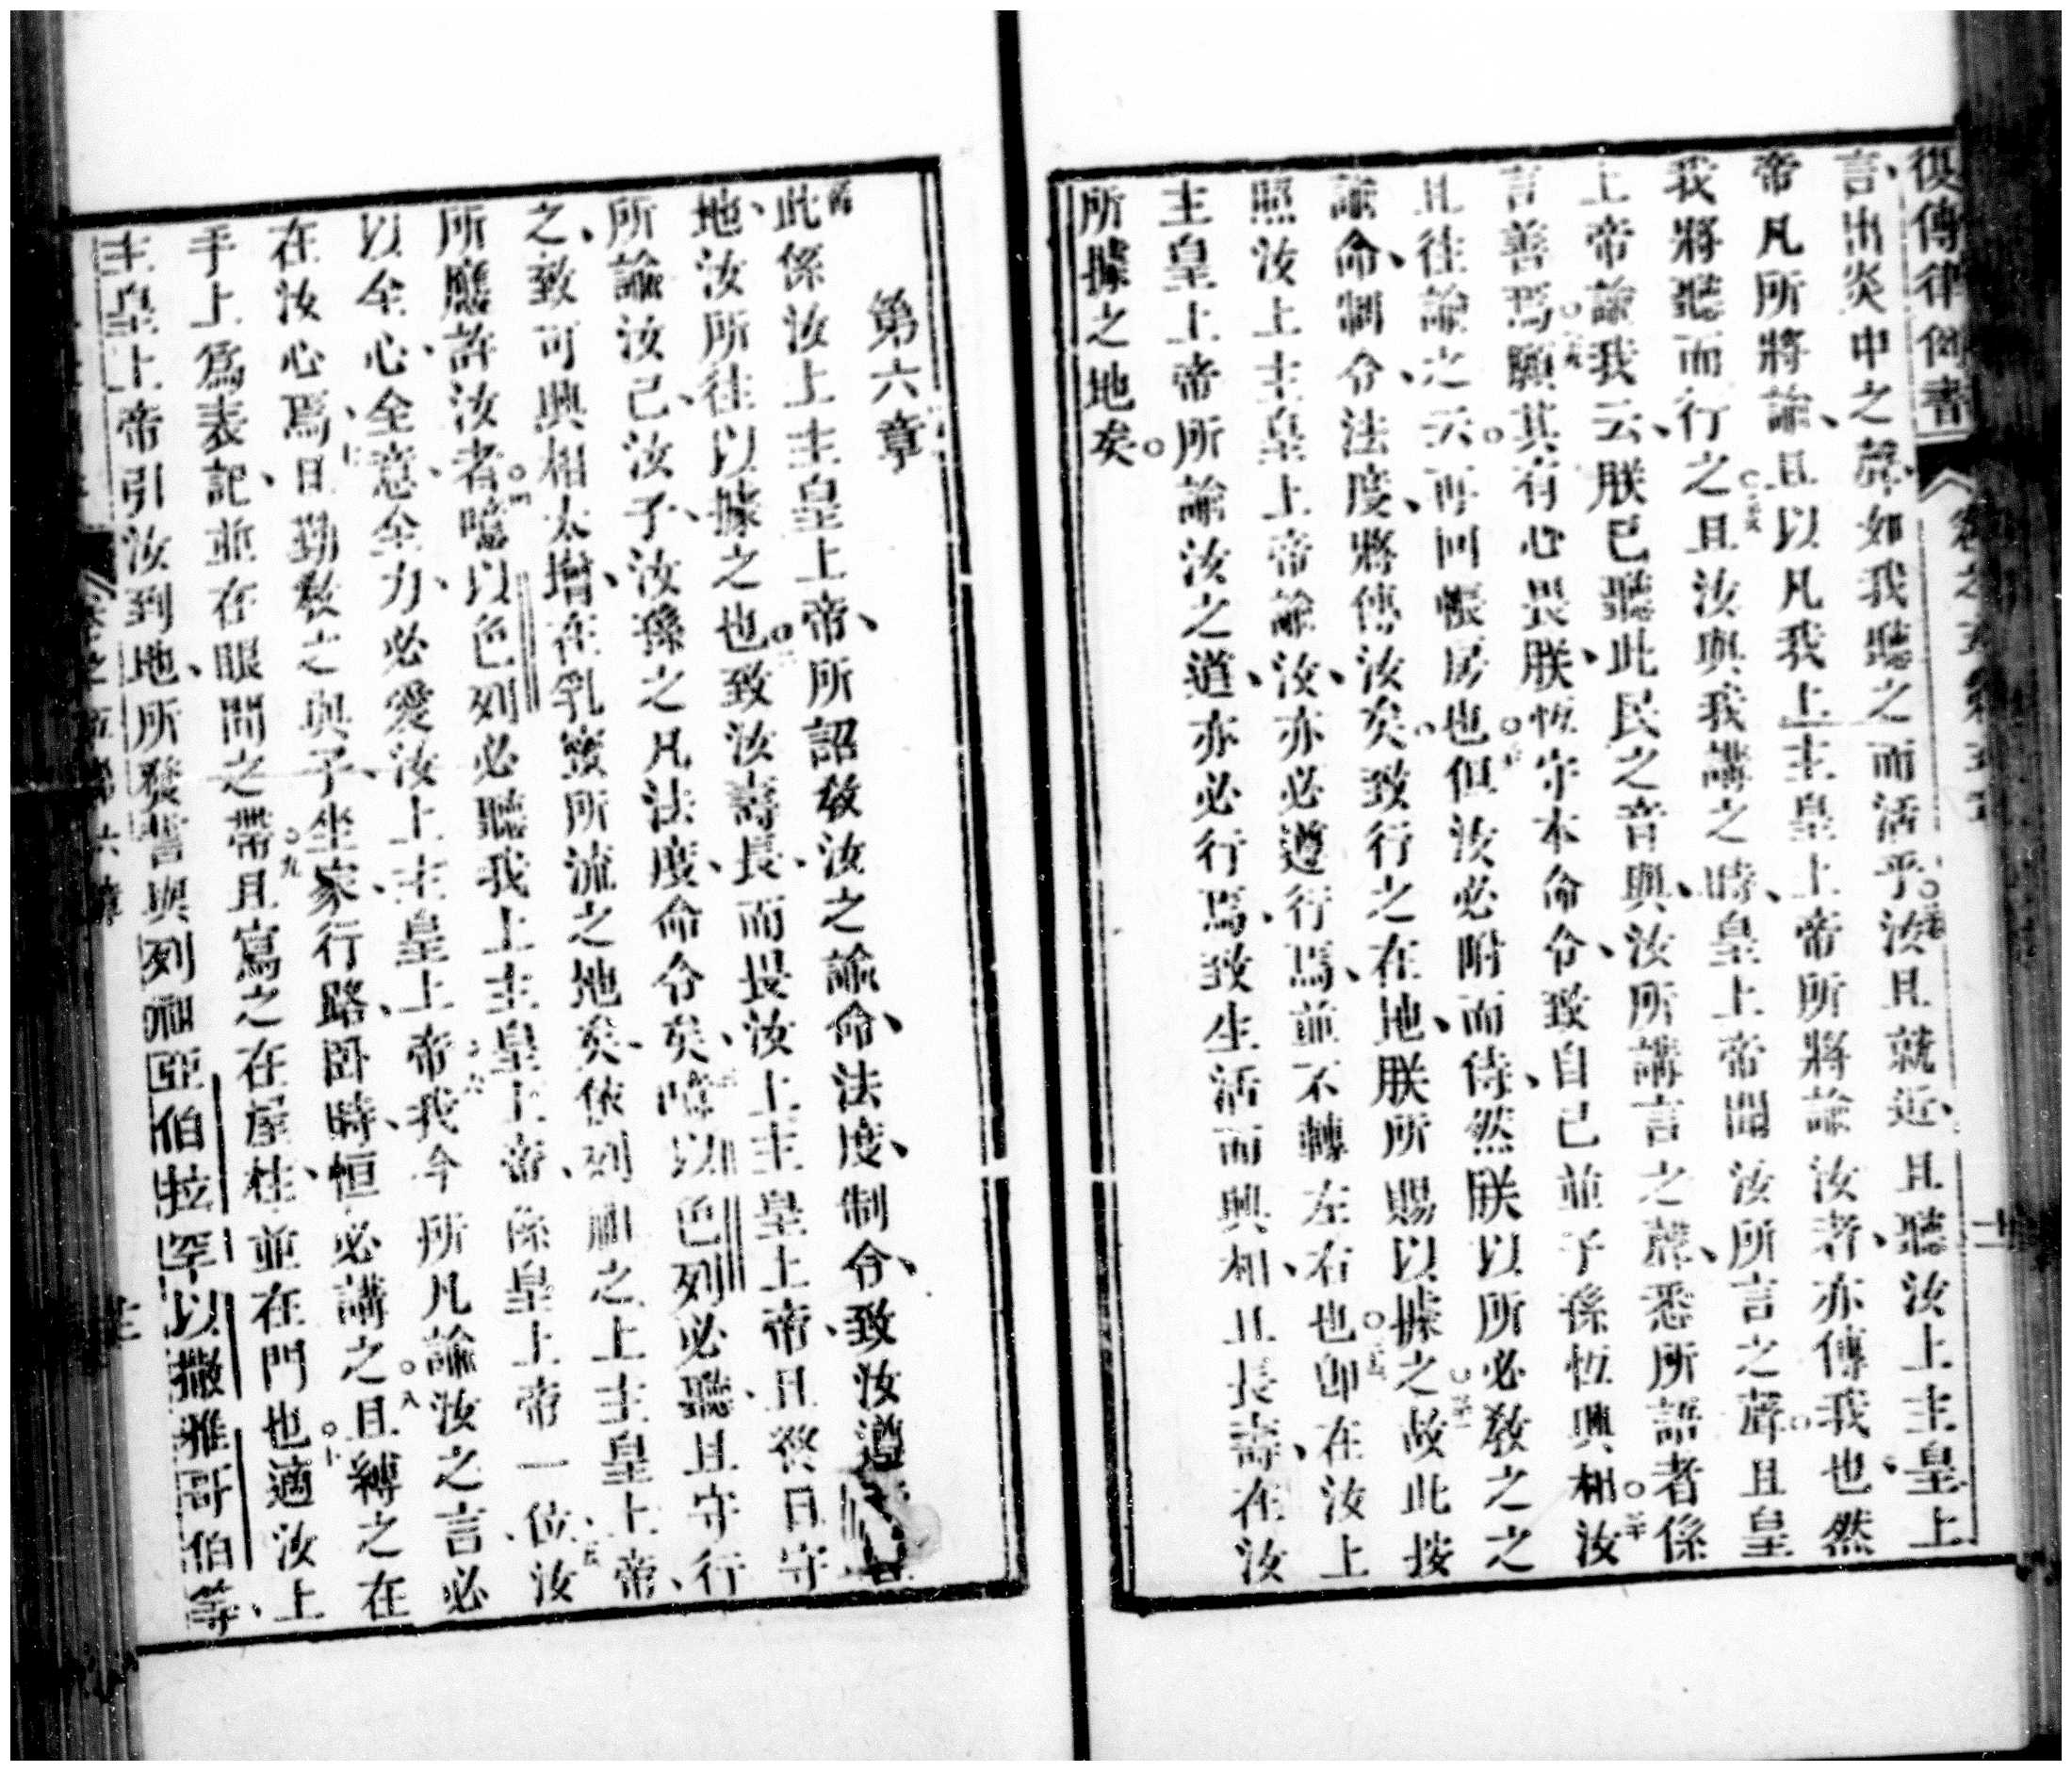 復傳律例書
卷之五 第五章
十二
言、出炎中之聲、如我聽之而活乎、○汝且就近、且聽汝上主皇上
帝凡所將諭、且以凡我上主皇上帝所將諭汝者、亦傳我也、然
我將聽而行之○且汝與我講之時、皇上帝聞汝所言之聲○且皇
上帝諭我云、朕已聽此民之音與、汝所講言之聲、悉所語者係
言善焉○願其有心畏朕、恆守本命令、致自己並子孫恆興相○汝
且往諭之云○再回帳房也○但汝必附而侍、然朕以所必教之之
諭命、制令、法度、將傳汝矣、致行之在地、朕所賜以據之○故此按
照汝上主皇上帝諭汝、亦必遵行焉、並不轉左右也○卽在汝上
主皇上帝所諭汝之道、亦必行焉、致生活而興相、且長壽、在汝
所據之地矣○
第六章
此係汝上主皇上帝、所詔教汝之諭命、法度、制令、致汝遵
地、汝所往以據之也○致汝壽長、而畏汝上主皇上帝、且終日守
所諭汝己、汝子、汝孫之凡法度、命令矣、噫以色列必聽、且守行
之、致可興相太增、在乳蜜所流之地矣、依列祖之上主皇上帝、
所應許汝者○噫以色列必聽我上主皇上帝、係皇上帝一位、汝
以全心、全意、全力、必愛汝上主皇上帝○我今所凡諭汝之言必
在汝心焉、日勤教之與子、坐家、行路、卧時、恒必講之○且縛之在
手上爲表記、並在眼間之帶○且寫之在屋柱、並在門也○適汝上
主皇上帝引汝到地、所發誓與列祖亞伯拉罕以撒雅哥伯等、